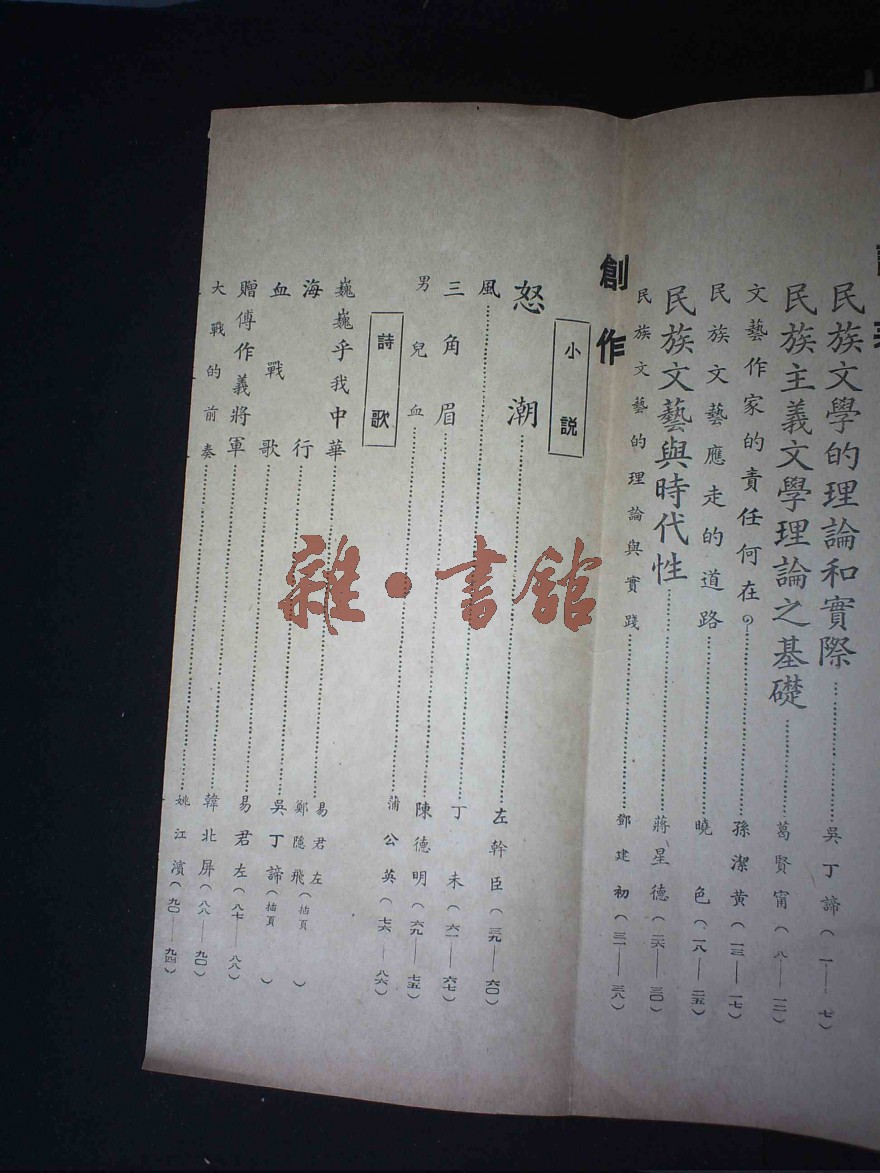 民族文學的理論和實際……吳丁諦(一——七)
民族主義文學理論之基礎……葛賢甯(八——一二)
文藝作家的責任何在?……孫潔黃(一三——一七)
民族文藝應走的道路……曉色(一八——二五)
民族文藝與時代性……蔣星德(二六——三〇)
民族文藝的理論與實踐……鄧建初(三一——三八)
創作
小說
怒潮……左幹臣(三九——六〇)
風……丁未(六一——六七)
三角眉……陳德明(六九——七五)
男兒血……蒲公英(七六——八六)
詩歌
巍巍乎我中華……易君左
海行……鄭隱飛(插頁)
血戰歌……吳丁諦(插頁)
贈傅作義將軍……易君左(八七——八八)
大戰的前奏……韓北屏(八八——九〇)
……姚江濱(九〇——九四)
雜·書館